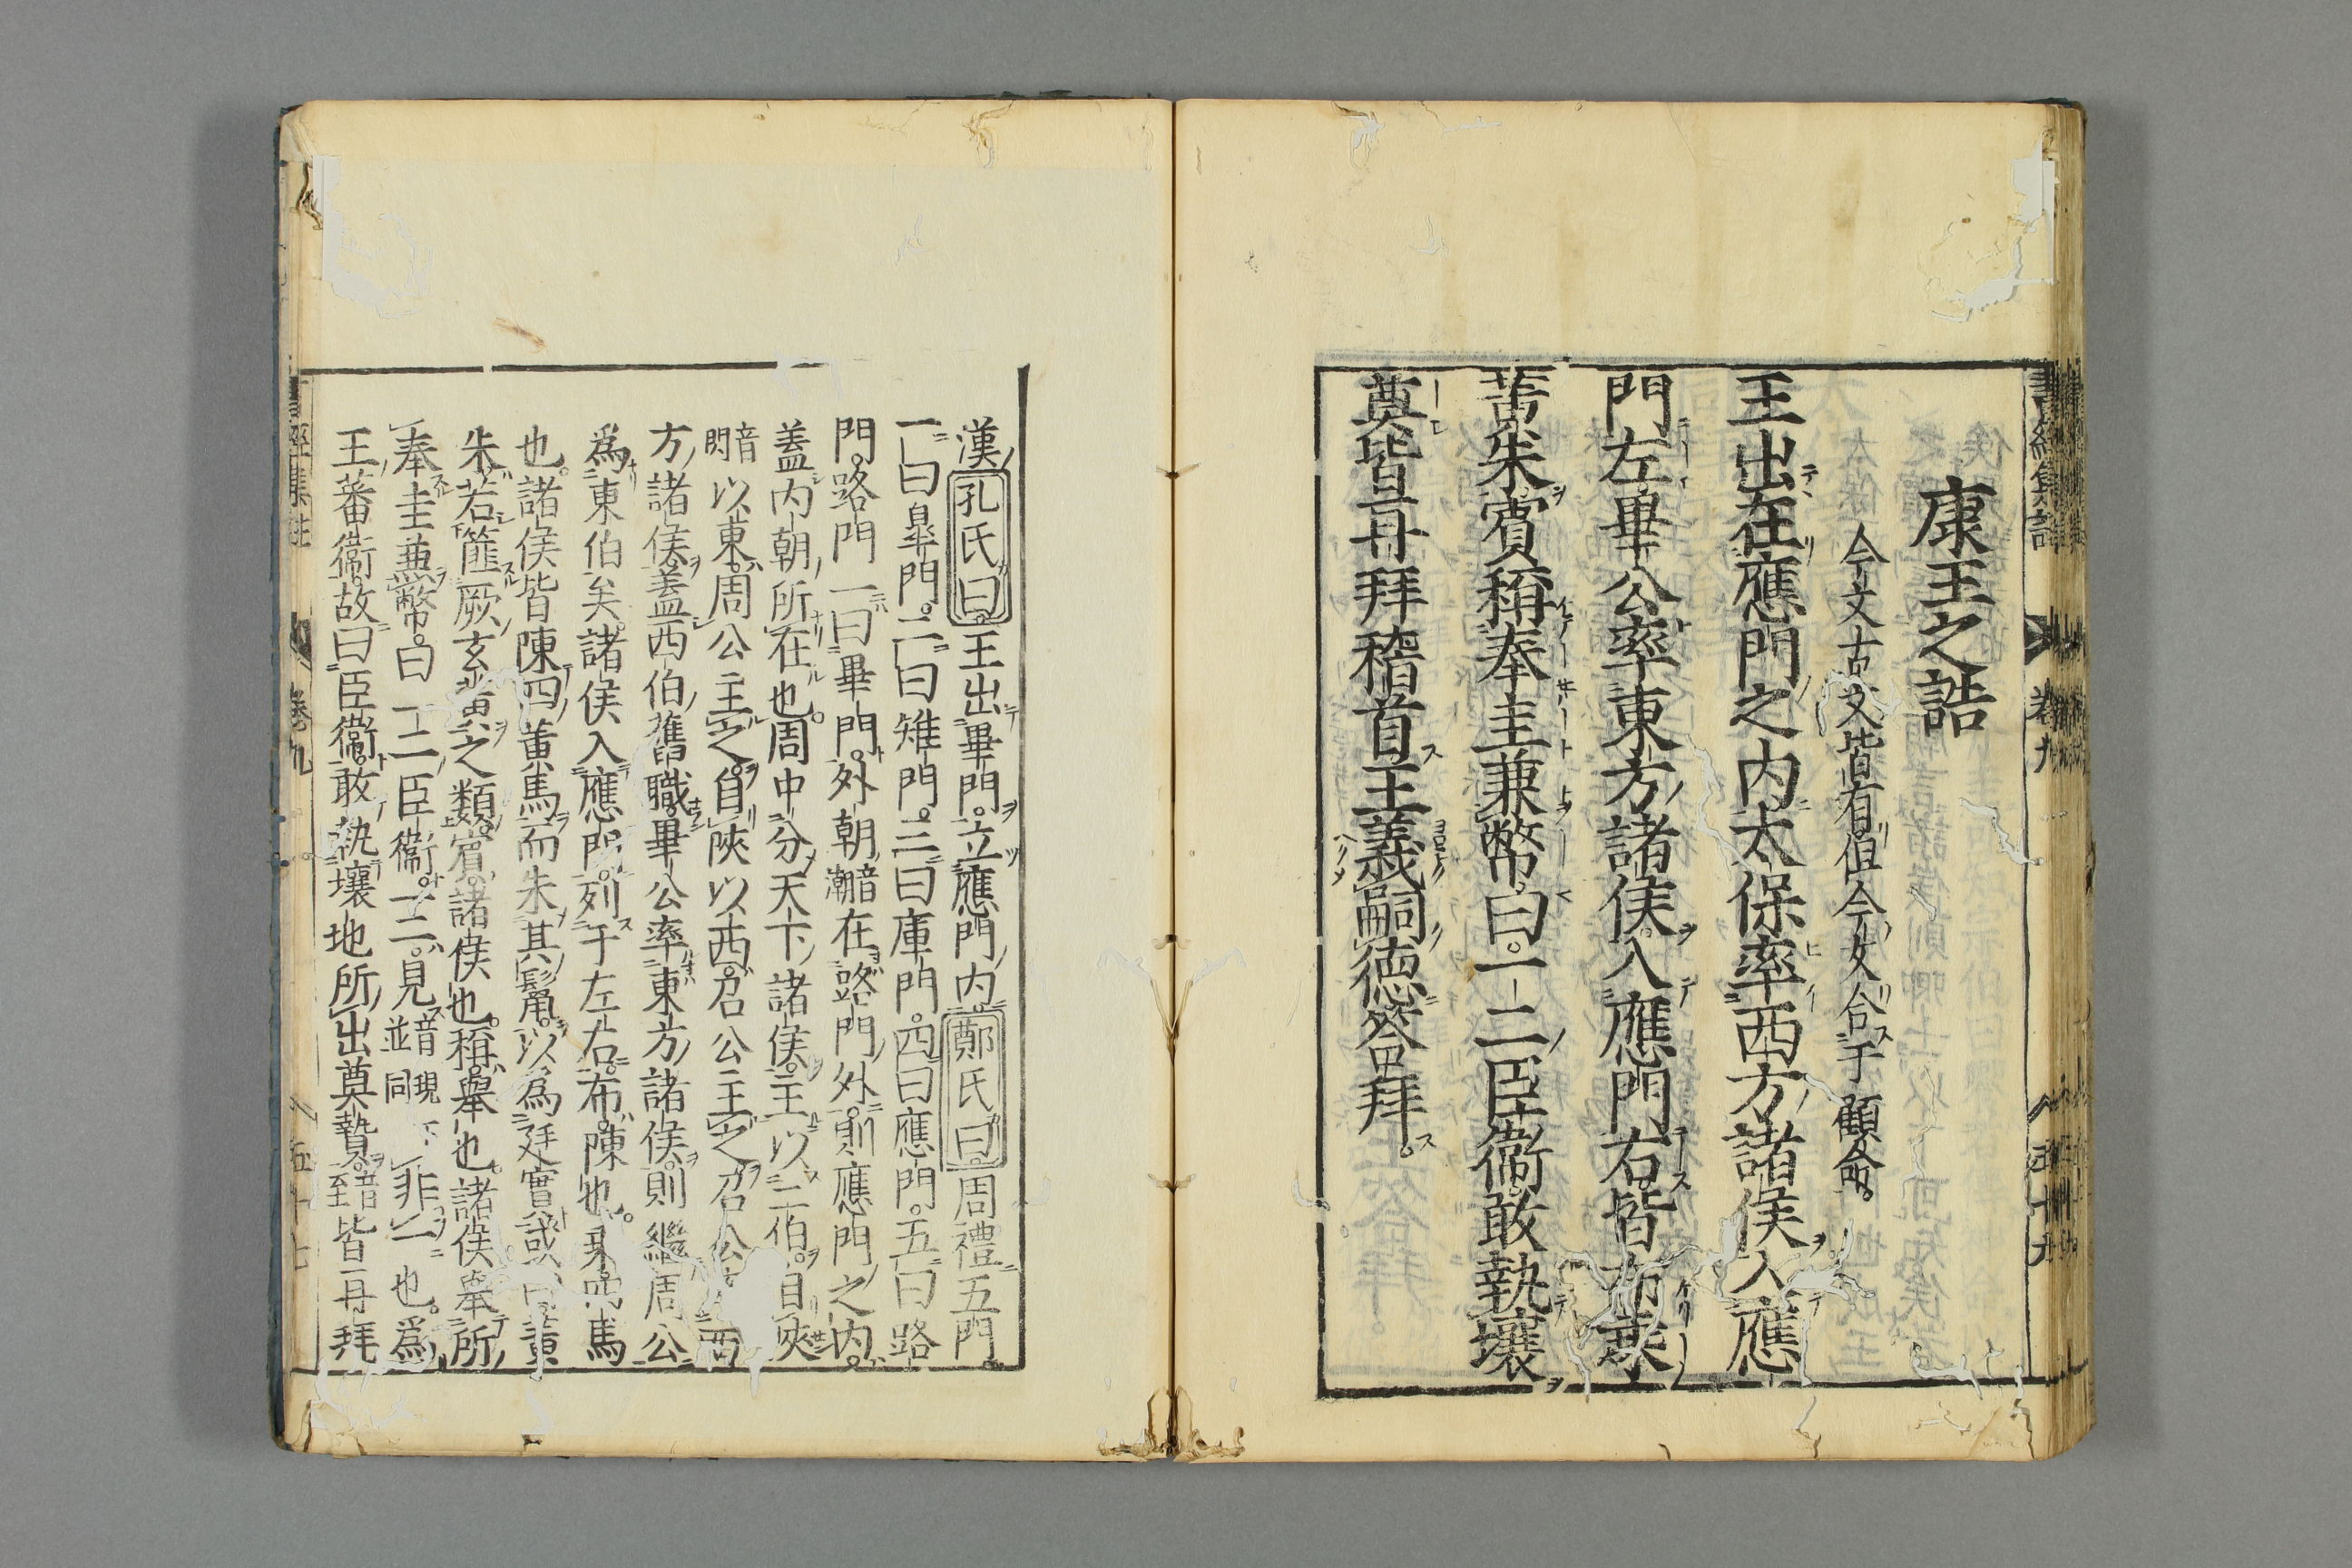 康王之誥
今文古文皆有但今文合于顧命。
王出在應門之内太保率西方諸侯入應
門左畢公率東方諸侯入應門右皆布乘
黃朱賓稱奉圭兼幣曰。一二臣衞敢執壤
奠皆再拜稽首王義嗣德答拜。
書經集註 卷九 五十九
漢孔氏曰。王出畢門。立應門内鄭氏曰。周禮五門。
一曰皐門。二曰雉門。三曰庫門。四曰應門。五曰路
門。路門一曰畢門。外朝音潮在路門外。則應門之内。
蓋内朝所在也。周中分天下諸侯。主以二伯。自陜
音閃以東。周公主之。自陜以西。召公主之。召公
方諸侯。蓋西伯舊職。畢公率東方諸侯。則繼周公
爲東伯矣。諸侯入應門。列于左右。布。陳也。乘。四馬
也。諸侯皆陳四黃馬而朱其鬣。以爲廷實。或曰黃
朱。若篚厥玄黃之類。賓。諸侯也。稱。舉也。諸侯舉所
奉圭兼幣。曰一二臣衞。一二。見音現並同非一也。爲
王蕃衞。故曰臣衞。敢執壤地所出奠贄。音至皆再拜